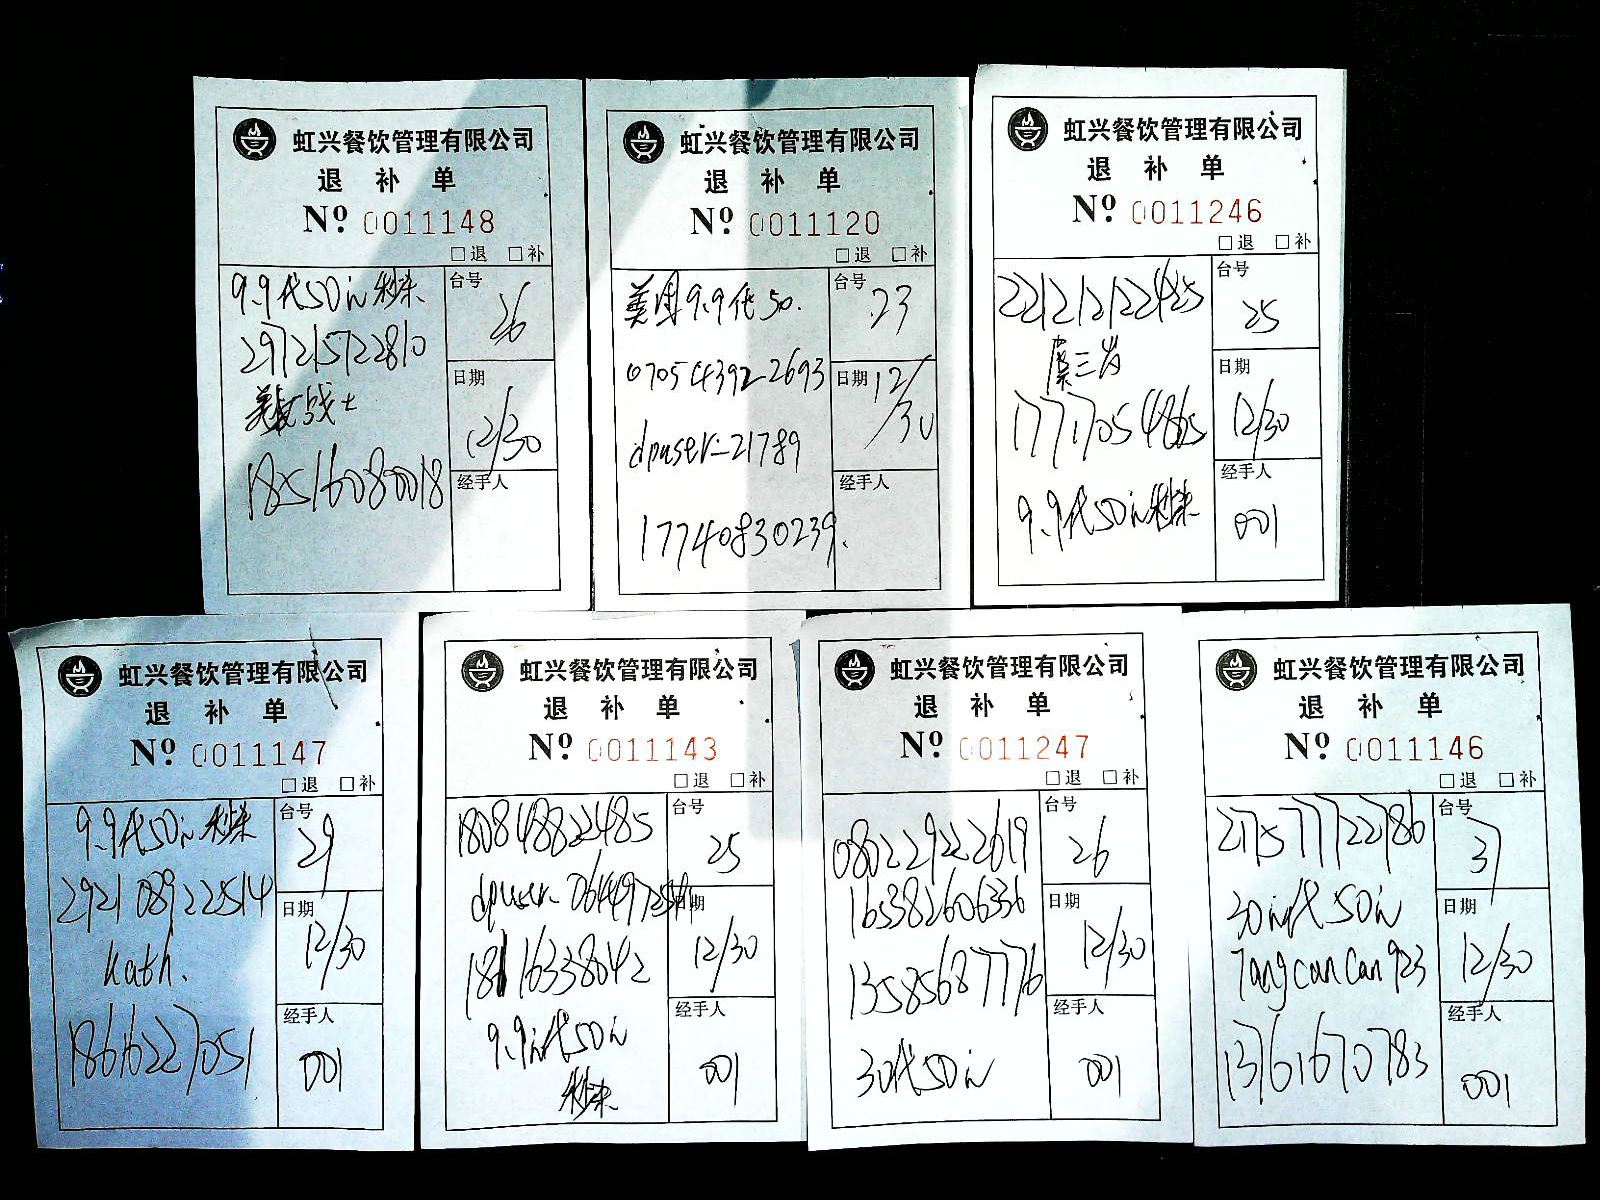 虹兴餐饮管理有限公司
退 补 单
Nº 0011148
□退 □补
9.9代50元秒杀
297215722810
美女战士
18516080018
台号
26
日期
12/30
经手人
虹兴餐饮管理有限公司
退 补 单
Nº 0011120
□退 □补
美团9.9代50.
070543922693
dpuser-21789
17740830239.
台号
23
日期
12/30
经手人
虹兴餐饮管理有限公司
退 补 单
Nº 0011246
□退 □补
221212122425
虞三岁
17717054865
9.9代50元秒杀
台号
25
日期
12/30
经手人
001
虹兴餐饮管理有限公司
退 补 单
Nº 0011147
□退 □补
9.9代50元秒杀
292108922514
kath.
18616227051
台号
29
日期
12/30
经手人
001
虹兴餐饮管理有限公司
退 补 单
Nº 0011143
□退 □补
180848822485
18116338042
9.9元代50元
秒杀
台号
25
日期
12/30
经手人
001
虹兴餐饮管理有限公司
退 补 单
Nº 0011247
□退 □补
080229222619
165382606336
13585687776
30代50元
台号
26
日期
12/30
经手人
001
虹兴餐饮管理有限公司
退 补 单
Nº 0011146
□退 □补
217577722786
30元代50元
Tangcancan923
13761670783
台号
37
日期
12/30
经手人
001